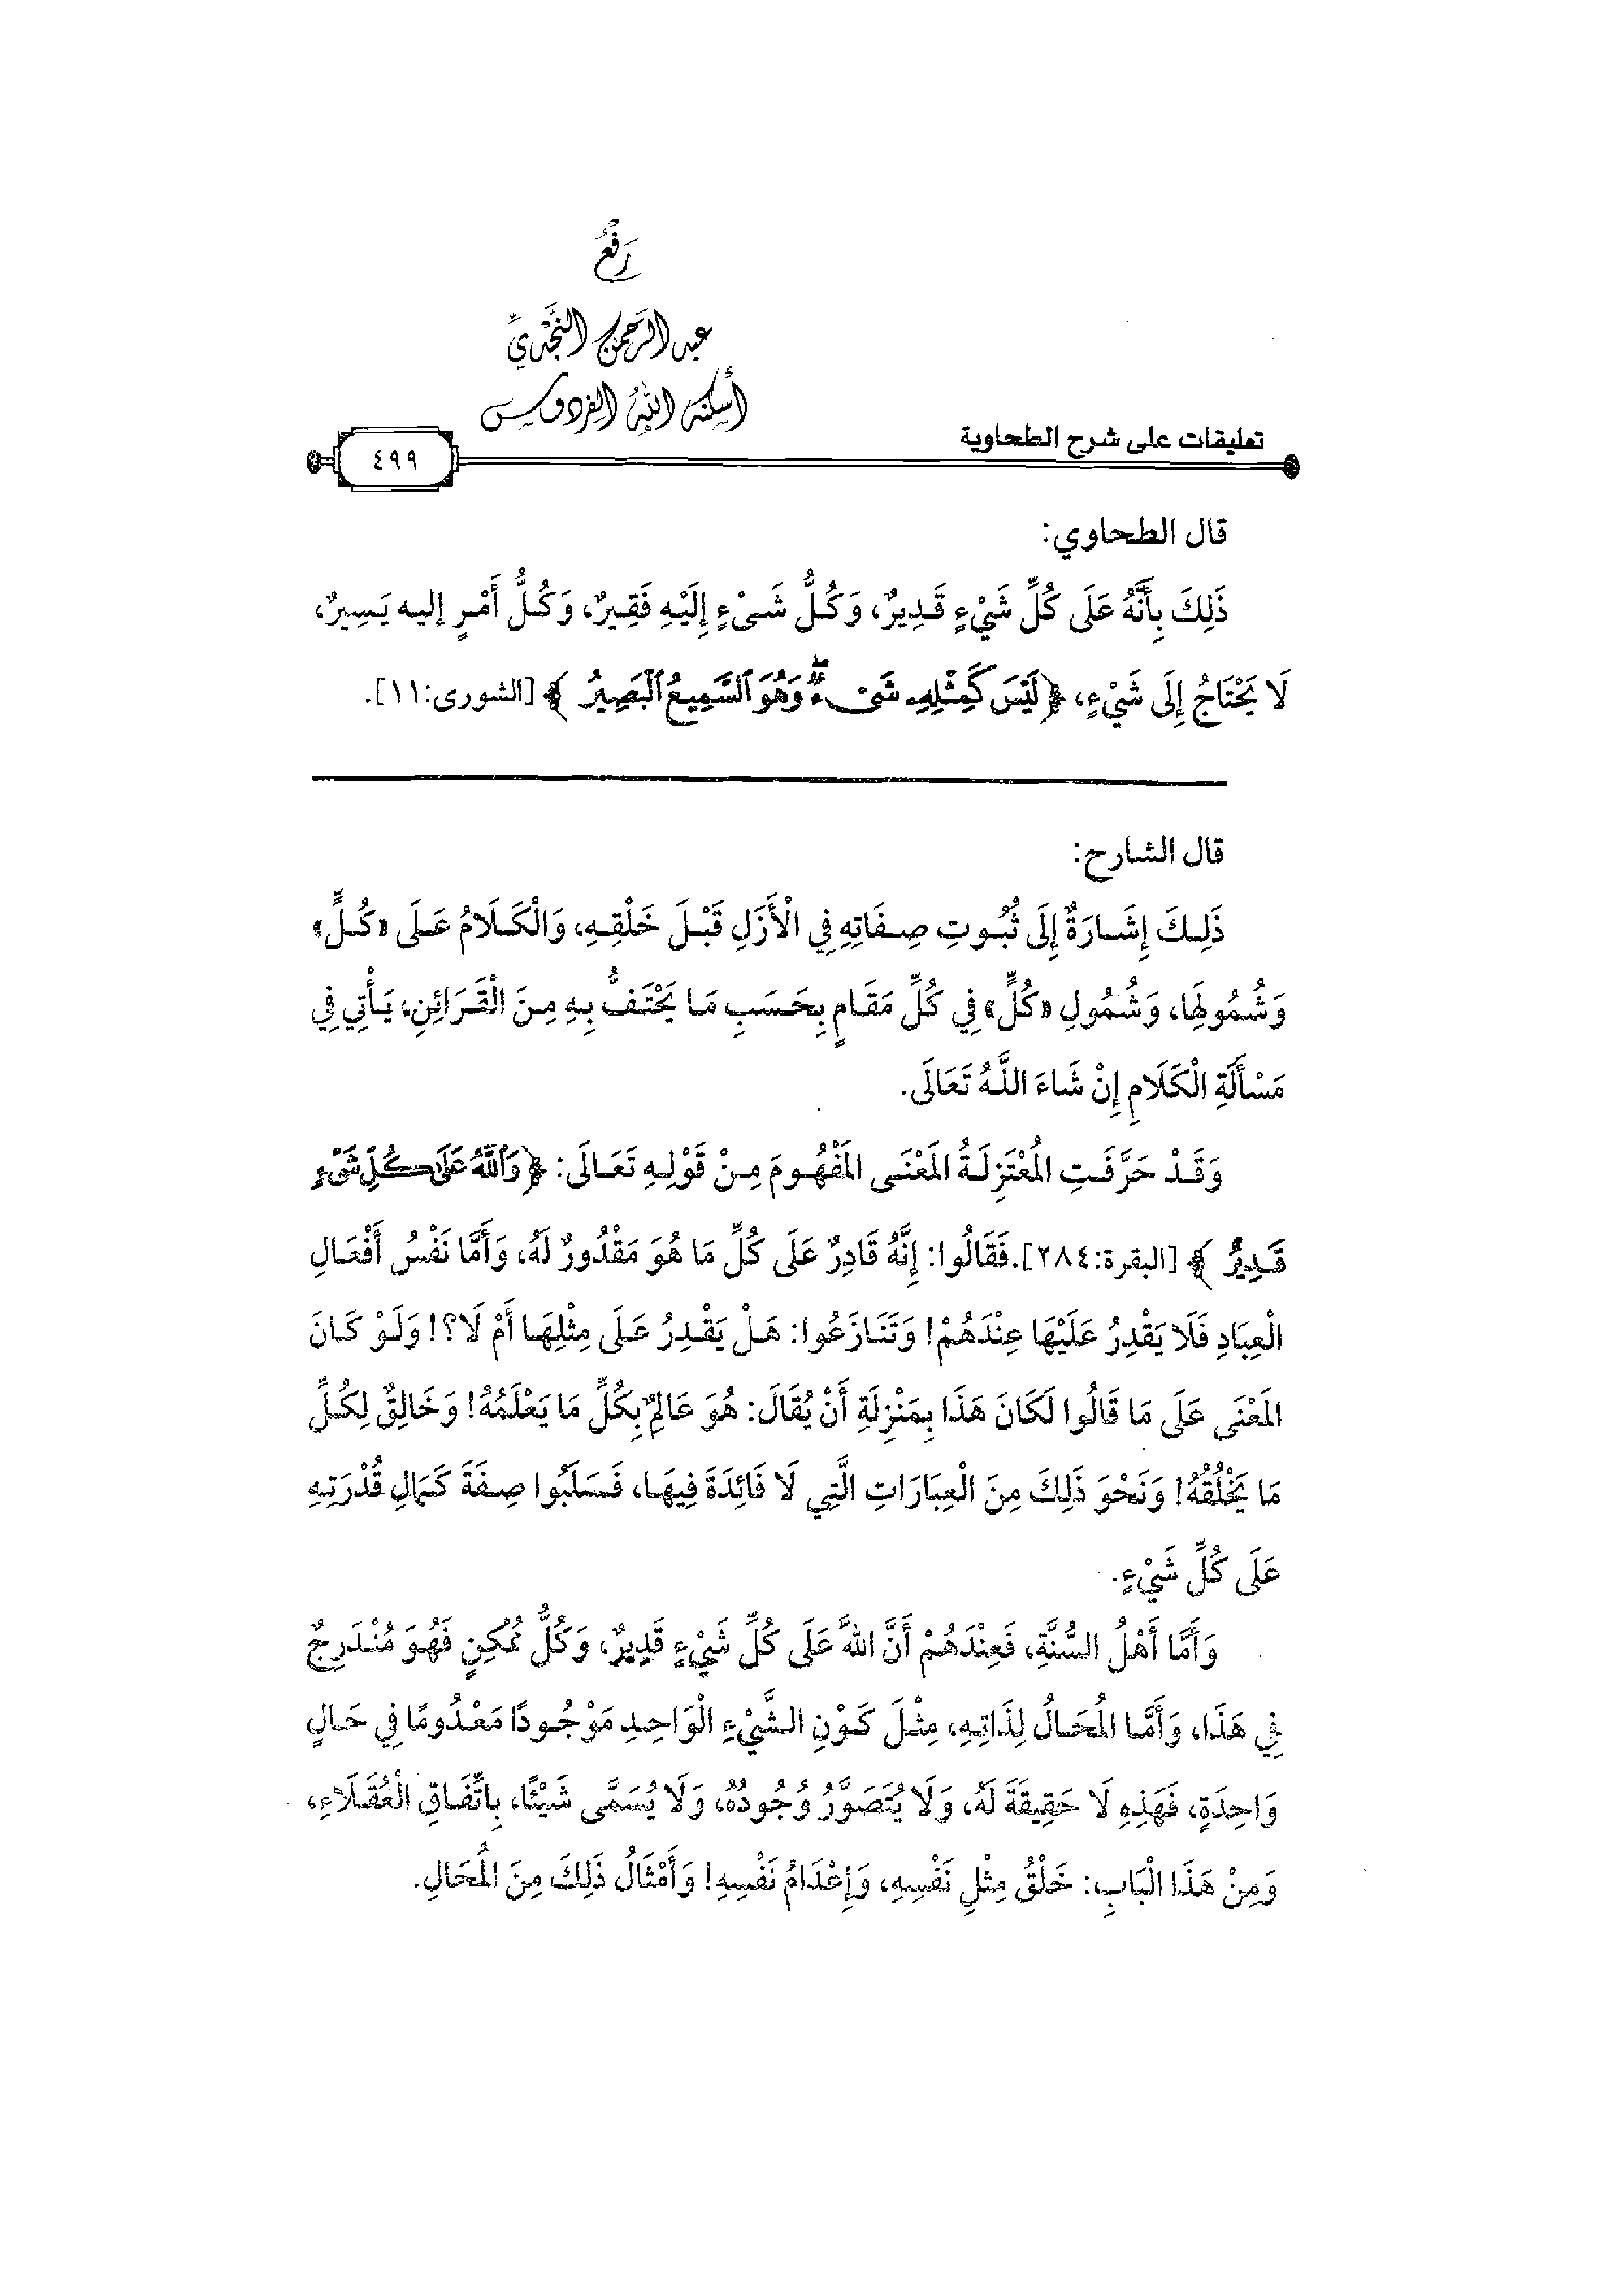 رَفْعُ
عبد الرَّحمن النَّجْديِّ
أسكنه اللهُ الفردوس
تعليقات على شرح الطحاوية
٤٩٩
قال الطحاوي:
ذَلِكَ بِأَنَّهُ عَلَى كُلِّ شَيْءٍ قَدِيرٌ، وَكُلُّ شَيْءٍ إِلَيْهِ فَقِيرٌ، وَكُلُّ أَمْرٍ إليه يَسِيرٌ،
لَا يَحْتَاجُ إِلَى شَيْءٍ، ﴿لَيْسَ كَمِثْلِهِۦ شَىْءٌ ۖ وَهُوَ ٱلسَّمِيعُ ٱلْبَصِيرُ ﴾ [الشورى:١١].
قال الشارح:
ذَلِكَ إِشَارَةٌ إِلَى ثُبُوتِ صِفَاتِهِ فِي الْأَزَلِ قَبْلَ خَلْقِهِ، وَالْكَلَامُ عَلَى «كُلٍّ»
وَشُمُولِهَا، وَشُمُولِ «كُلٍّ» فِي كُلِّ مَقَامٍ بِحَسَبِ مَا يَحْتَفُّ بِهِ مِنَ الْقَرَائِنِ، يَأْتِي فِي
مَسْأَلَةِ الْكَلَامِ إِنْ شَاءَ اللَّهُ تَعَالَى.
وَقَدْ حَرَّفَتِ الْمُعْتَزِلَةُ الْمَعْنَى الْمَفْهُومَ مِنْ قَوْلِهِ تَعَالَى: ﴿وَٱللَّهُ عَلَىٰ كُلِّ شَىْءٍ
قَدِيرٌ ﴾ [البقرة:٢٨٤]. فَقَالُوا: إِنَّهُ قَادِرٌ عَلَى كُلِّ مَا هُوَ مَقْدُورٌ لَهُ، وَأَمَّا نَفْسُ أَفْعَالِ
الْعِبَادِ فَلَا يَقْدِرُ عَلَيْهَا عِنْدَهُمْ! وَتَنَازَعُوا: هَلْ يَقْدِرُ عَلَى مِثْلِهَا أَمْ لَا؟! وَلَوْ كَانَ
الْمَعْنَى عَلَى مَا قَالُوا لَكَانَ هَذَا بِمَنْزِلَةِ أَنْ يُقَالَ: هُوَ عَالِمٌ بِكُلِّ مَا يَعْلَمُهُ! وَخَالِقٌ لِكُلِّ
مَا يَخْلُقُهُ! وَنَحْوَ ذَلِكَ مِنَ الْعِبَارَاتِ الَّتِي لَا فَائِدَةَ فِيهَا، فَسَلَبُوا صِفَةَ كَمَالِ قُدْرَتِهِ
عَلَى كُلِّ شَيْءٍ.
وَأَمَّا أَهْلُ السُّنَّةِ، فَعِنْدَهُمْ أَنَّ اللهَ عَلَى كُلِّ شَيْءٍ قَدِيرٌ، وَكُلُّ مُمْكِنٍ فَهُوَ مُنْدَرِجٌ
فِي هَذَا، وَأَمَّا الْمُحَالُ لِذَاتِهِ، مِثْلَ كَوْنِ الشَّيْءِ الْوَاحِدِ مَوْجُودًا مَعْدُومًا فِي حَالٍ
وَاحِدَةٍ، فَهَذِهِ لَا حَقِيقَةَ لَهُ، وَلَا يُتَصَوَّرُ وُجُودُهُ، وَلَا يُسَمَّى شَيْئًا، بِاتِّفَاقِ الْعُقَلَاءِ،
وَمِنْ هَذَا الْبَابِ: خَلْقُ مِثْلِ نَفْسِهِ، وَإِعْدَامُ نَفْسِهِ! وَأَمْثَالُ ذَلِكَ مِنَ الْمُحَالِ.